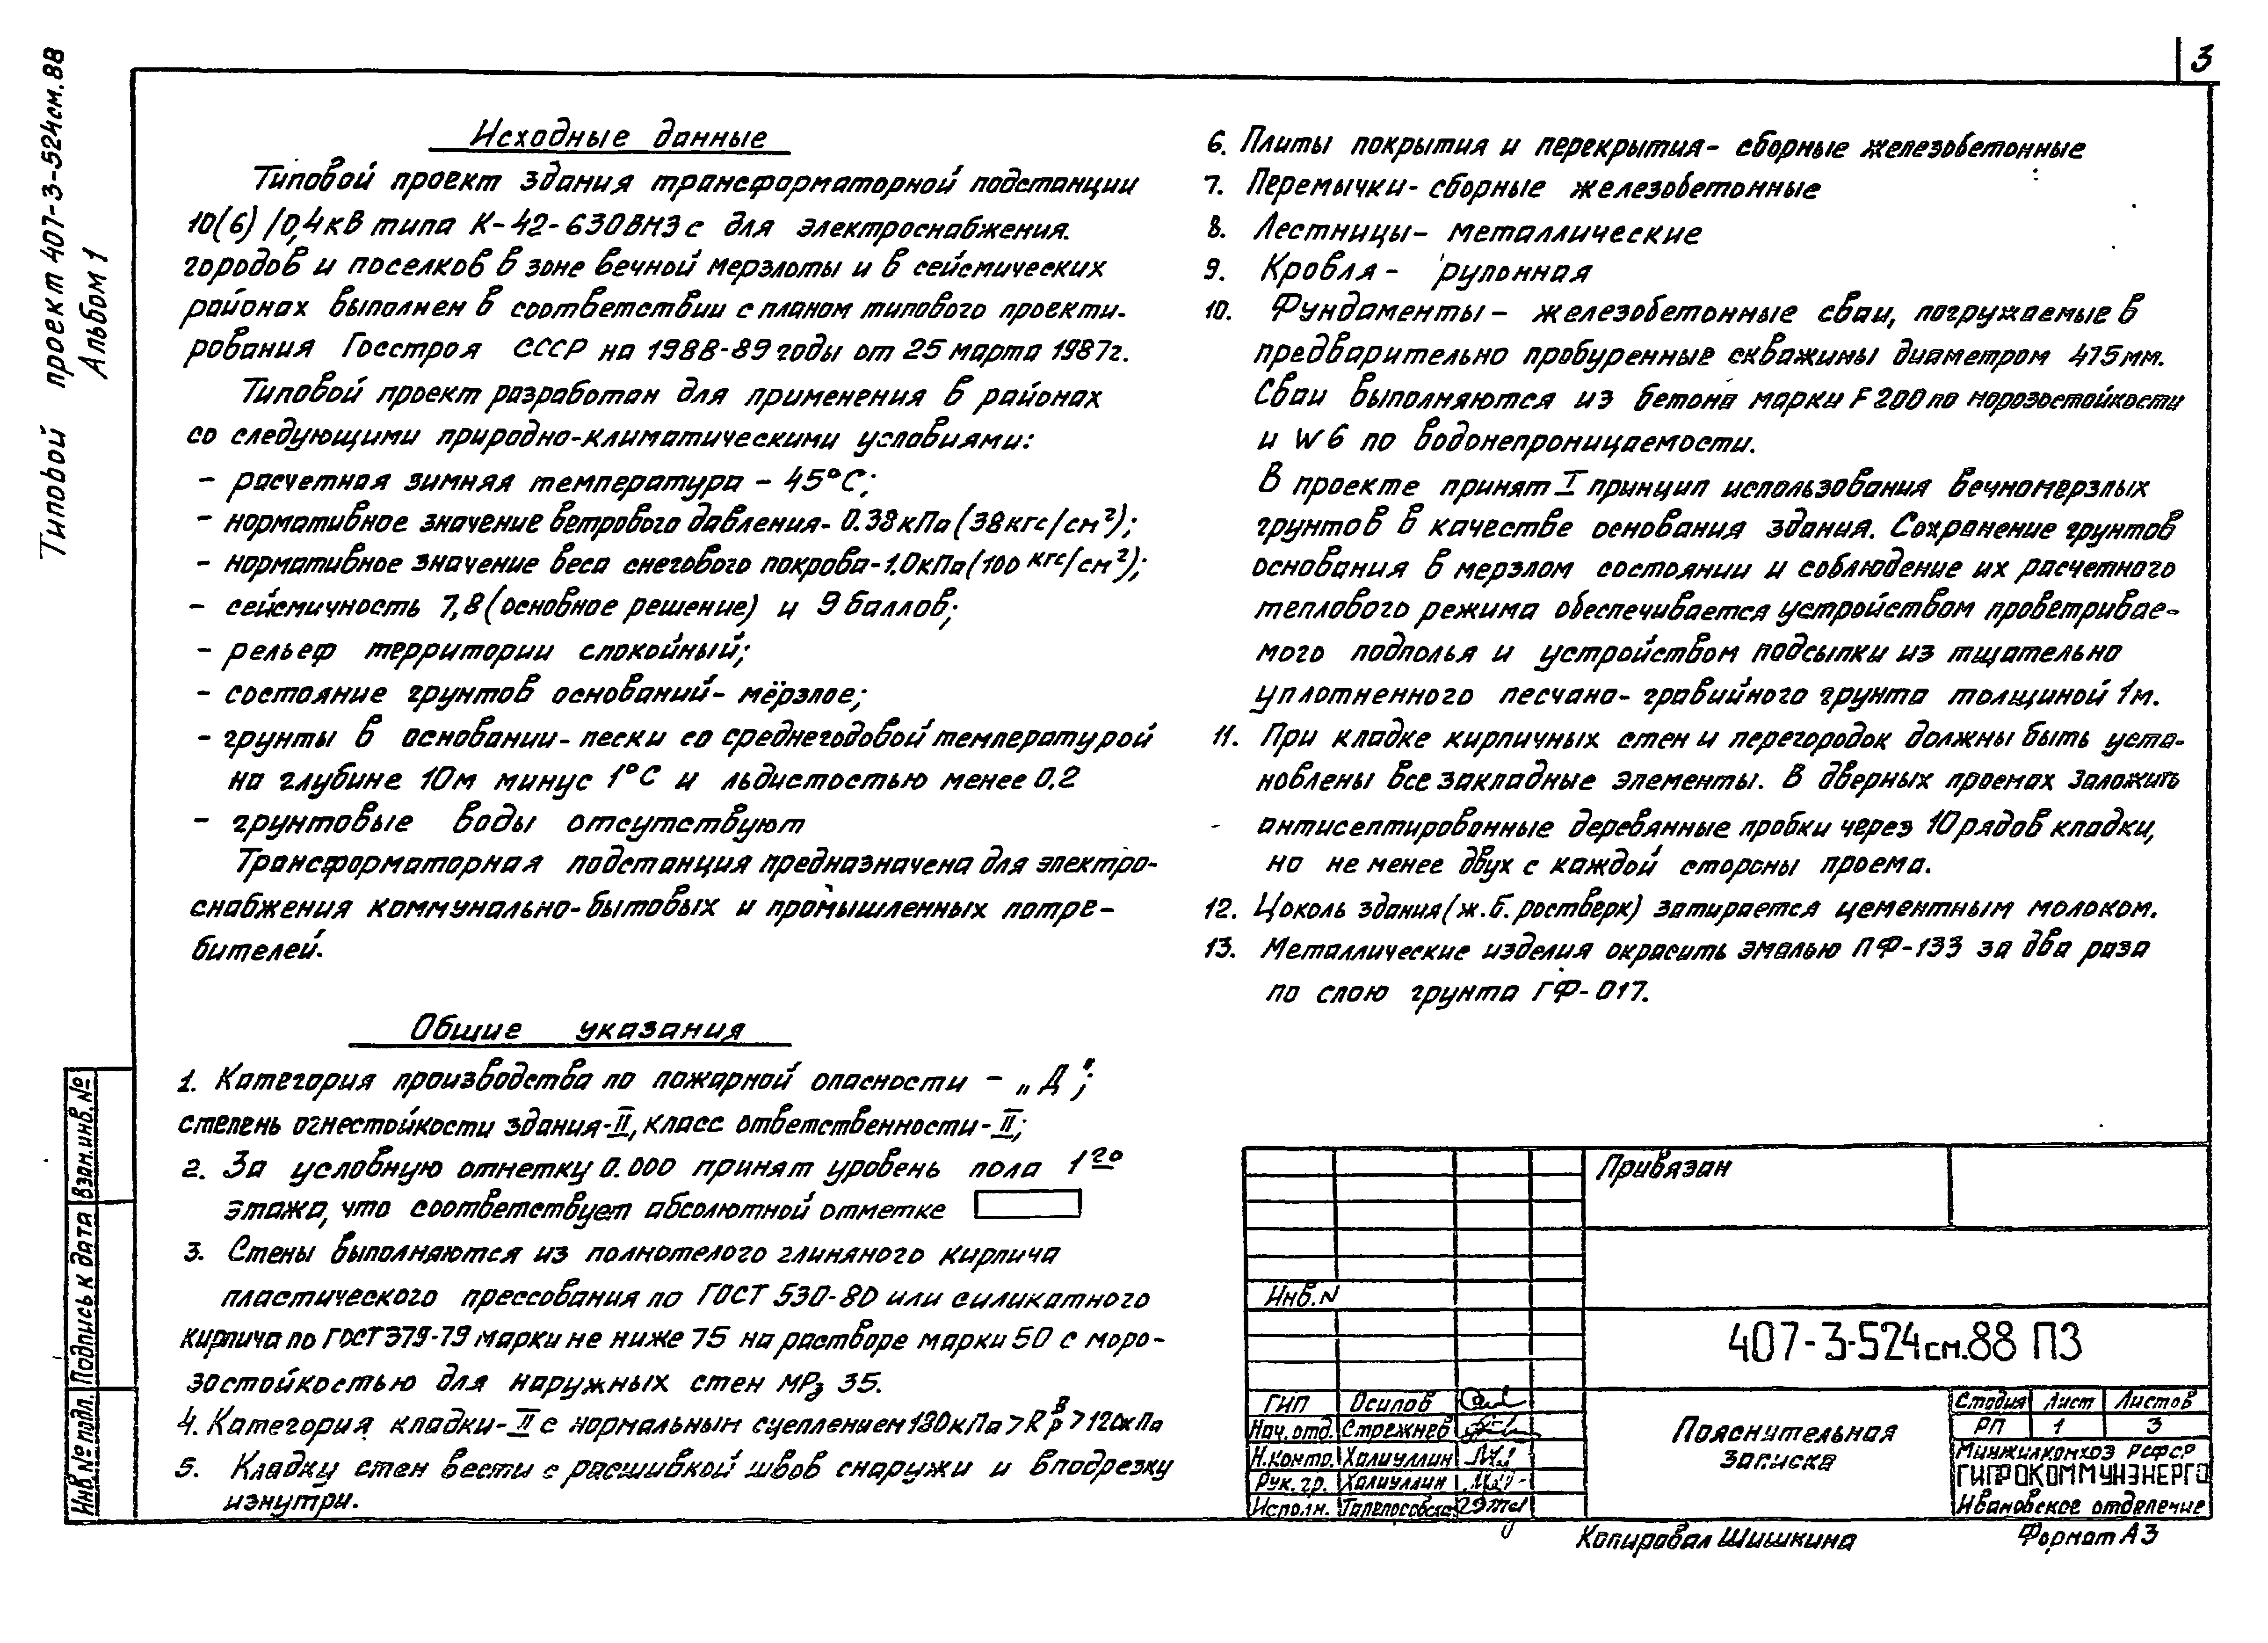 3
Типовой проект 407-3-524см.88
Альбом 1
Исходные данные
Типовой проект здания трансформаторной подстанции
10(6)/0,4кВ типа К-42-630ВМ3с для электроснабжения.
городов и поселков в зоне вечной мерзлоты и в сейсмических
районах выполнен в соответствии с планом типового проекти-
рования Госстроя СССР на 1988-89 годы от 25 марта 1987г.
Типовой проект разработан для применения в районах
со следующими природно-климатическими условиями:
- расчетная зимняя температура - 45°С;
- нормативное значение ветрового давления- 0.38кПа (38кгс/см²);
- нормативное значение веса снегового покрова-1.0кПа(100 кгс/см²);
- сейсмичность 7,8 (основное решение) и 9 баллов;
- рельеф территории спокойный;
- состояние грунтов оснований- мёрзлое;
- грунты в основании- пески со среднегодовой температурой
на глубине 10м минус 1°С и льдистостью менее 0.2
- грунтовые воды отсутствуют
Трансформаторная подстанция предназначена для электро-
снабжения коммунально-бытовых и промышленных потре-
бителей.
Общие указания
1. Категория производства по пожарной опасности - „Д";
степень огнестойкости здания-II, класс ответственности-II;
2. За условную отметку 0.000 принят уровень пола 1го
этажа, что соответствует абсолютной отметке
3. Стены выполняются из полнотелого глиняного кирпича
пластического прессования по ГОСТ 530-80 или силикатного
кирпича по ГОСТ379-79 марки не ниже 75 на растворе марки 50 с моро-
зостойкостью для наружных стен МРз 35.
4. Категория кладки-II с нормальным сцеплением 180кПа > R в р > 120кПа
5. Кладку стен вести с расшивкой швов снаружи и вподрезку
изнутри.
6. Плиты покрытия и перекрытия- сборные железобетонные
7. Перемычки- сборные железобетонные
8. Лестницы- металлические
9. Кровля- рулонная
10. Фундаменты- железобетонные сваи, погружаемые в
предварительно пробуренные скважины диаметром 475мм.
Сваи выполняются из бетона марки F200 по морозостойкости
и W6 по водонепроницаемости.
В проекте принят I принцип использования вечномерзлых
грунтов в качестве основания здания. Сохранение грунтов
основания в мерзлом состоянии и соблюдение их расчетного
теплового режима обеспечивается устройством проветривае-
мого подполья и устройством подсыпки из тщательно
уплотненного песчано-гравийного грунта толщиной 1м.
11. При кладке кирпичных стен и перегородок должны быть уста-
новлены все закладные элементы. В дверных проемах заложить
антисептированные деревянные пробки через 10 рядов кладки,
но не менее двух с каждой стороны проема.
12. Цоколь здания (ж.б. ростверк) затирается цементным молоком.
13. Металлические изделия окрасить эмалью ПФ-133 за два раза
по слою грунта ГФ-017.
Взам.инв.№
Подпись и дата
Инв.№ подл.
Привязан
Инв.N
407-3-524см.88 ПЗ
ГИП Осипов
Нач.отд. Стрежнев
Н.контр. Халиуллин
Рук. гр. Халиуллин
Исполн.
Пояснительная
записка
Стадия Лист Листов
РП 1 3
Минжилкомхоз РСФСР
ГИПРОКОММУНЭНЕРГО
Ивановское отделение
Копировал Шишкина
Формат А3